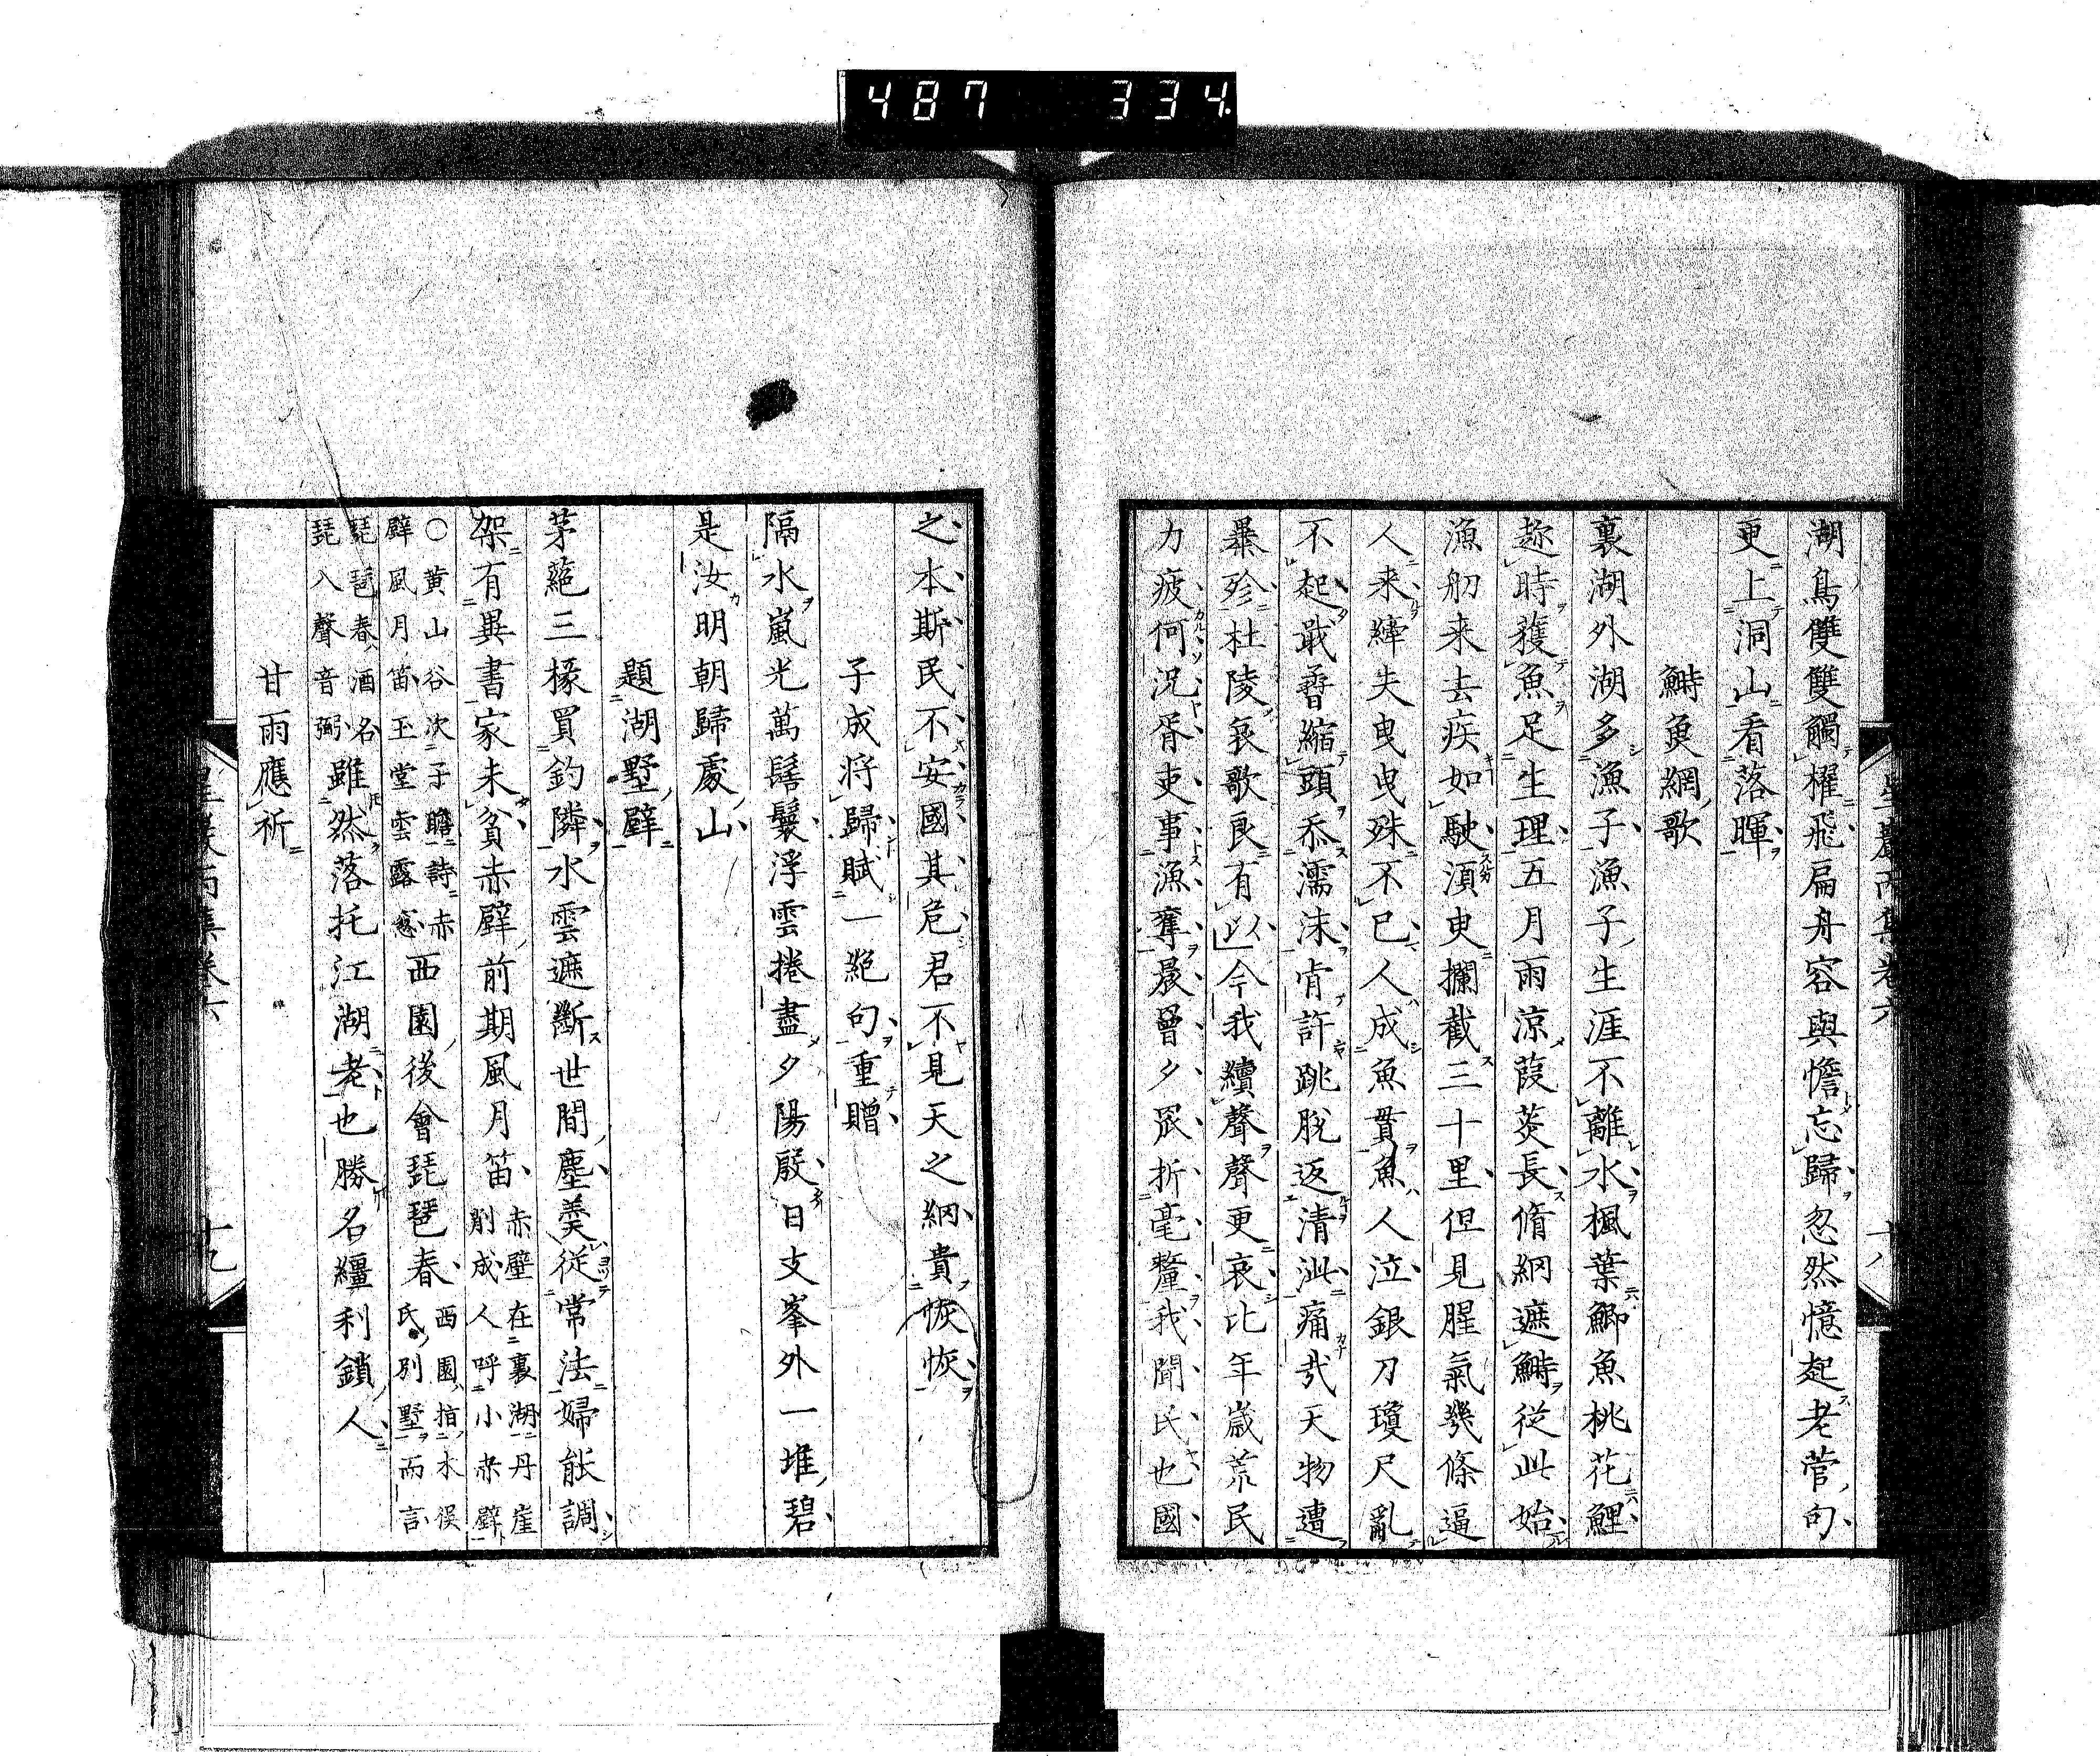 487 334
湖鳥雙雙觸櫂飛扁舟容與憺忘歸忽然憶起老菅句
更上洞山看落暉
鰣魚網歌
裏湖外湖多漁子漁子生涯不離水楓葉鯽魚桃花鯉
趂時獲魚足生理五月雨涼葭菼長脩網遮鰣從此始
漁舠来去疾如駛湏臾攔截三十里但見腥氣幾條逼
人来縴夫曳曳殊不已人成魚貫魚人泣銀刀瓊尺亂
不起戢鬐縮頭忝濡沫肯許跳脫返清泚痛哉天物遭
暴殄杜陵哀歌良有以今我續聲聲更哀比年歲荒民
力疲何况胥吏事漁奪晨罾夕罛折毫釐我聞民也國
之本斯民不安國其危君不見天之網貴恢恢
子成将歸賦一絶句重贈
隔水嵐光萬髻鬟浮雲捲盡夕陽殷日支峯外一堆碧
是汝明朝歸處山
題湖墅壁
茅蕝三椽買釣隣水雲遮斷世間塵羮從常法婦能調
架有異書家未貧赤壁前期風月笛赤壁在裏湖丹崖
削成人呼小赤壁
○黄山谷次子瞻詩赤
壁風月笛玉堂雲露窓西園後會琵琶春西園指水俣
氏別墅而言
琵琶春酒名
琵八聲音弼雖然落托江湖老也勝名繮利鎖人
甘雨應祈
星巖丙集卷六 十八
星巖丙集卷六 十九